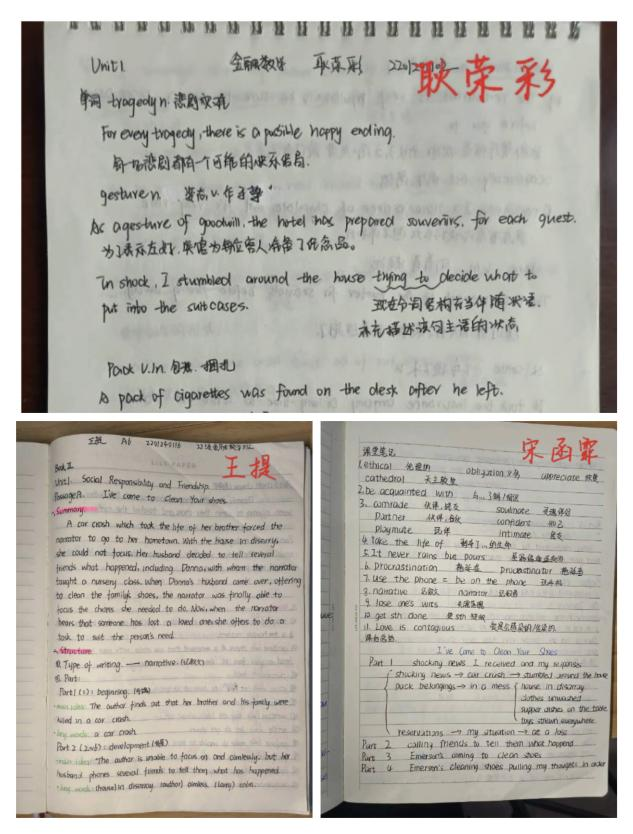 Unit1. 金融数学 耿荣彩
耿荣彩
单词 tragedy n. 悲剧
For every tragedy, there is a possible happy ending.
每一场悲剧都有一个可能的快乐结局.
gesture n. 姿态 v. 作手势
As a gesture of goodwill, the hotel has prepared souvenirs, for each guest.
为了表示友好, 宾客 准备了纪念品。
In shock, I stumbled around the house trying to decide what to
put into the suitcases. 现在分词结构充当伴随状语.
补充描述该句主语的状态
Pack v.n. 包装. 捆扎
A pack of cigarettes was found on the desk after he left.
王提 A6
王提
Book II
Unit1. Social Responsibility and Friendship.
Passage A. I've come to Clean Your shoes.
Summary
A car crash which took the life of her brother forced the
narrator to go to her hometown. With the house in disarray,
she could not focus. Her husband decided to tell several
friends what happened, including Donna, with whom the narrator
taught a nursery class. When Donna's husband came over, offering
to clean the family's shoes, the narrator was finally able to
focus the chores she needed to do. Now, when the narrator
hears that someone has lost a loved one, she offers to do a
task to suit the person's need.
Structure
Type of writing. — narrative.
Part:
Part 1 (1): beginning.
main idea: The author finds out that her brother and his family were
killed in a car crash.
key words: a car crash
Part 2 (2~6): development
main idea: The author is unable to focus on and aimlessly, but her
husband phones several friends to tell them what has happened.
key words: (house) in disarray, (author) aimless, (Larry) calm.
宋函霏
课堂笔记
1. ethical 伦理的 obligation 义务 appreciate
cathedral 天主教堂
2. be acquainted with 与...了解/相识
3. comrade 伙伴, 朋友 soulmate 灵魂伴侣
Partner 伙伴 confidant 知己
playmate 玩伴 intimate 密友
4. take the life of 剥夺了...的生命
5. It never rains but pours
6. Procrastination 拖延症 procrastinator 拖延者
7. use the phone = be on the phone
8. narrative 记叙文 narrator 记叙者
9. lose one's wits
10. get sth done 使sth
11. Love is contagious
课本
I've Come to Clean Your Shoes
Part 1 shocking news I received and my response
shocking news → car crash → stumbled around the house
pack belongings → in a mess house in disarray
clothes unwashed
supper dishes on the table
toys strewn everywhere
reservations → my situation → at a loss
Part 2 calling friends to tell them what happened
Part 3 Emerson's aiming to clean shoes
Part 4 Emerson's cleaning shoes pulling my thoughts in order